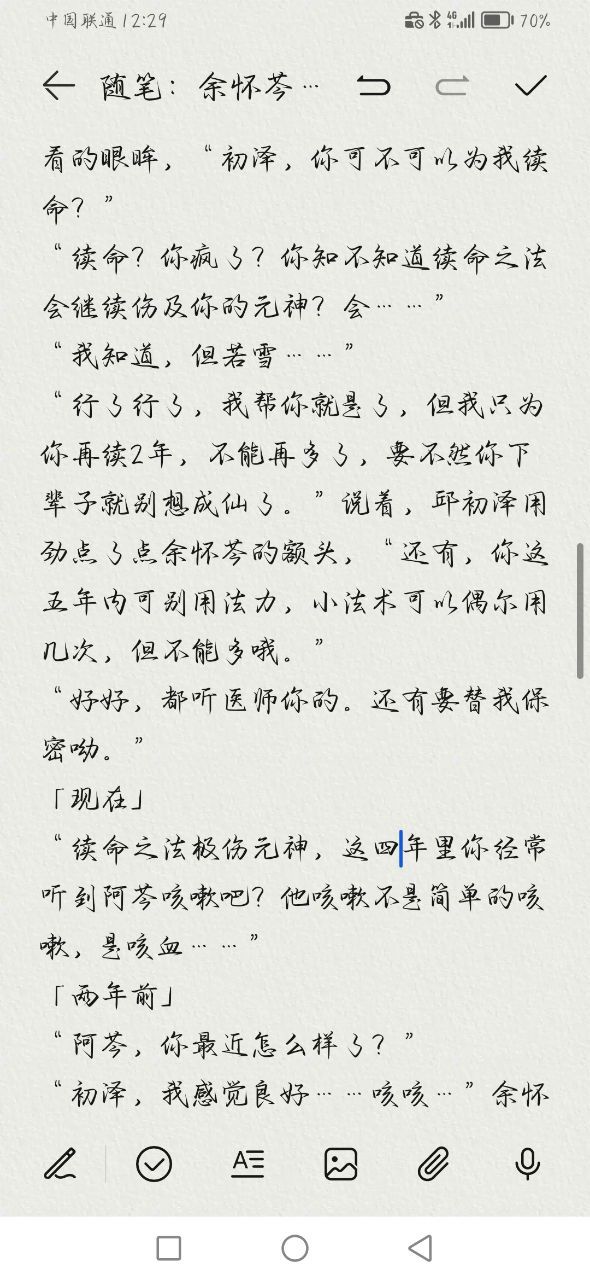 中国联通 12:29
4G
70%
随笔：余怀芩…
看的眼眸，“初泽，你可不可以为我续
命？”
“续命？你疯了？你知不知道续命之法
会继续伤及你的元神？会……”
“我知道，但若雪……”
“行了行了，我帮你就是了，但我只为
你再续2年，不能再多了，要不然你下
辈子就别想成仙了。”说着，邱初泽用
劲点了点余怀芩的额头，“还有，你这
五年内可别用法力，小法术可以偶尔用
几次，但不能多哦。”
“好好，都听医师你的。还有要替我保
密呦。”
「现在」
“续命之法极伤元神，这四年里你经常
听到阿芩咳嗽吧？他咳嗽不是简单的咳
嗽，是咳血……”
「两年前」
“阿芩，你最近怎么样了？”
“初泽，我感觉良好……咳咳…”余怀